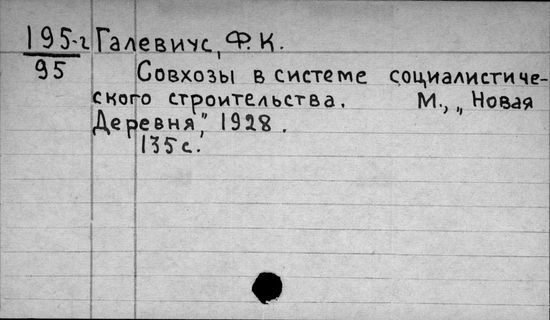 195-г Галевиус, Ф. К.
95
Совхозы в системе социалистиче-
ского строительства. М., „Новая
Деревня", 1928.
135 с.